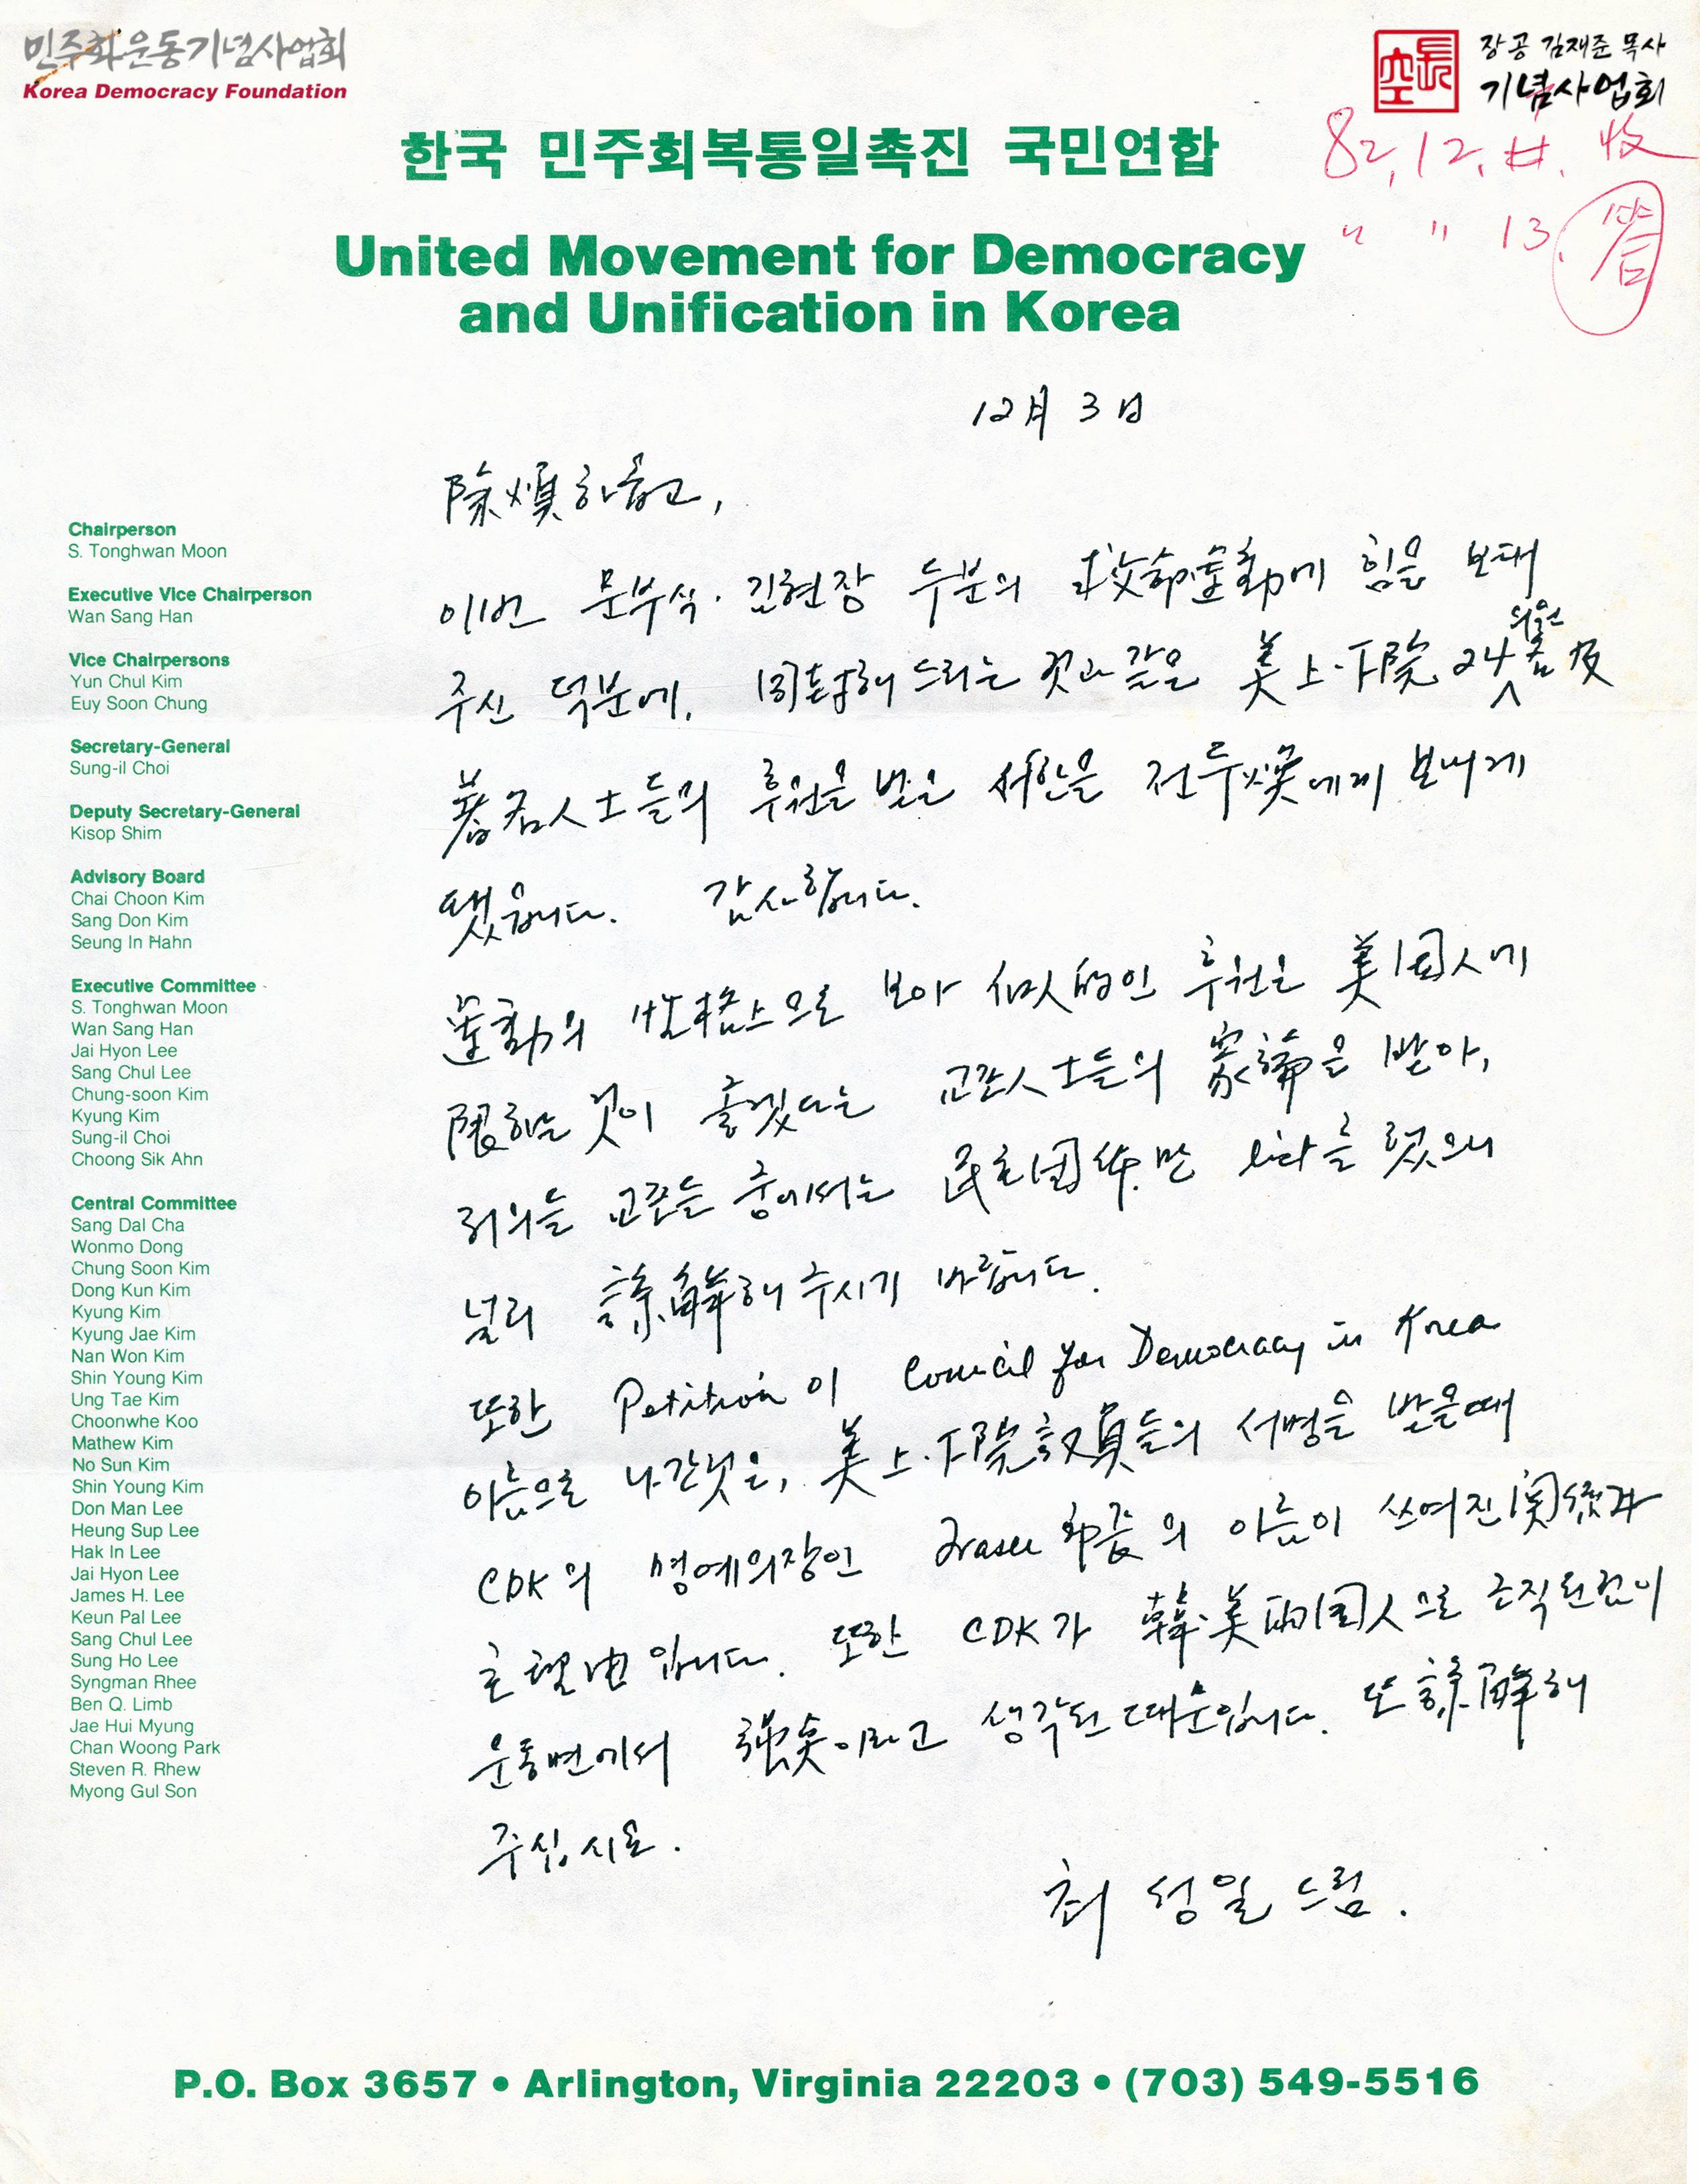 민주화운동기념사업회
Korea Democracy Foundation
長空
장공 김재준 목사
기념사업회
82, 12, 收
〃 〃 13. 答
한국 민주회복통일촉진 국민연합
United Movement for Democracy
and Unification in Korea
12月 3日
Chairperson
S. Tonghwan Moon
Executive Vice Chairperson
Wan Sang Han
Vice Chairpersons
Yun Chul Kim
Euy Soon Chung
Secretary-General
Sung-il Choi
Deputy Secretary-General
Kisop Shim
Advisory Board
Chai Choon Kim
Sang Don Kim
Seung In Hahn
Executive Committee
S. Tonghwan Moon
Wan Sang Han
Jai Hyon Lee
Sang Chul Lee
Chung-soon Kim
Kyung Kim
Sung-il Choi
Choong Sik Ahn
Central Committee
Sang Dal Cha
Wonmo Dong
Chung Soon Kim
Dong Kun Kim
Kyung Kim
Kyung Jae Kim
Nan Won Kim
Shin Young Kim
Ung Tae Kim
Choonwhe Koo
Mathew Kim
No Sun Kim
Shin Young Kim
Don Man Lee
Heung Sup Lee
Hak In Lee
Jai Hyon Lee
James H. Lee
Keun Pal Lee
Sang Chul Lee
Sung Ho Lee
Syngman Rhee
Ben Q. Limb
Jae Hui Myung
Chan Woong Park
Steven R. Rhew
Myong Gul Son
除煩하옵고,
이번 문부식·김현장 두분의 救命運動에 힘을 보태
주신 덕분에, 同封해 드리는 것과 같은 美上·下院 24 의원 名 及
著名人士들의 후원을 받은 서한을 전두煥에게 보내게
됐읍니다. 감사합니다.
運動의 性格上으로 보아 個人的인 후원은 美国人에
限하는 것이 좋겠다는 교포人士들의 을 받아,
저희들 교포들 중에서는 民主団体만 list를 했으니
널리 諒解해 주시기 바랍니다.
또한 Petition이 Council for Democracy in Korea
이름으로 나간것은, 美上·下院議員들의 서명을 받을때
CDK의 명예의장인 Fraser 의 이름이 쓰여진 関係가
主理由입니다. 또한 CDK가 韓·美 両国人으로 조직된것이
운동면에서 이라고 생각된 때문입니다. 또 諒解해
주십시요.
최 성일 드림.
P.O. Box 3657 • Arlington, Virginia 22203 • (703) 549-5516